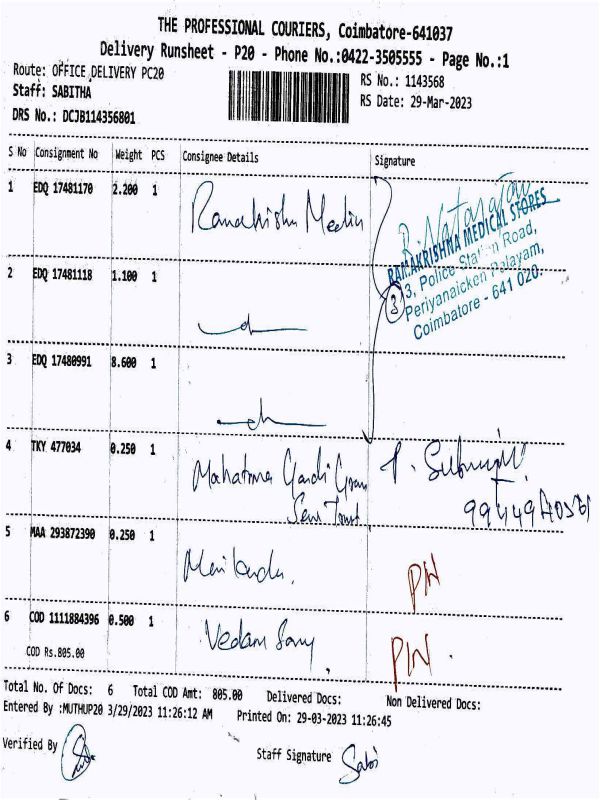 THE PROFESSIONAL COURIERS, Coimbatore-641037
Delivery Runsheet - P20 - Phone No.:0422-3505555 - Page No.:1
Route: OFFICE DELIVERY PC20
RS No.: 1143568
Staff: SABITHA
RS Date: 29-Mar-2023
DRS No.: DCJB114356801
S No Consignment No Weight PCS Consignee Details Signature
1 EDQ 17481170 2.200 1 Ramakishn Medin
R. Natarajan
RAMAKRISHNA MEDICAL STORES
3, Police Station Road,
Periyanaicken Palayam,
Coimbatore - 641 020.
3
2 EDQ 17481118 1.100 1
3 EDQ 17480991 8.600 1
4 TKY 477034 0.250 1 Mahatma Gandi Gram
Seva Trust
5 MAA 293872390 0.250 1 PN
6 COD 1111884396 0.500 1 Vedam PN.
COD Rs.805.00
Total No. Of Docs: 6 Total COD Amt: 805.00 Delivered Docs: Non Delivered Docs:
Entered By :MUTHUP20 3/29/2023 11:26:12 AM Printed On: 29-03-2023 11:26:45
Verified By
Staff Signature Sabi